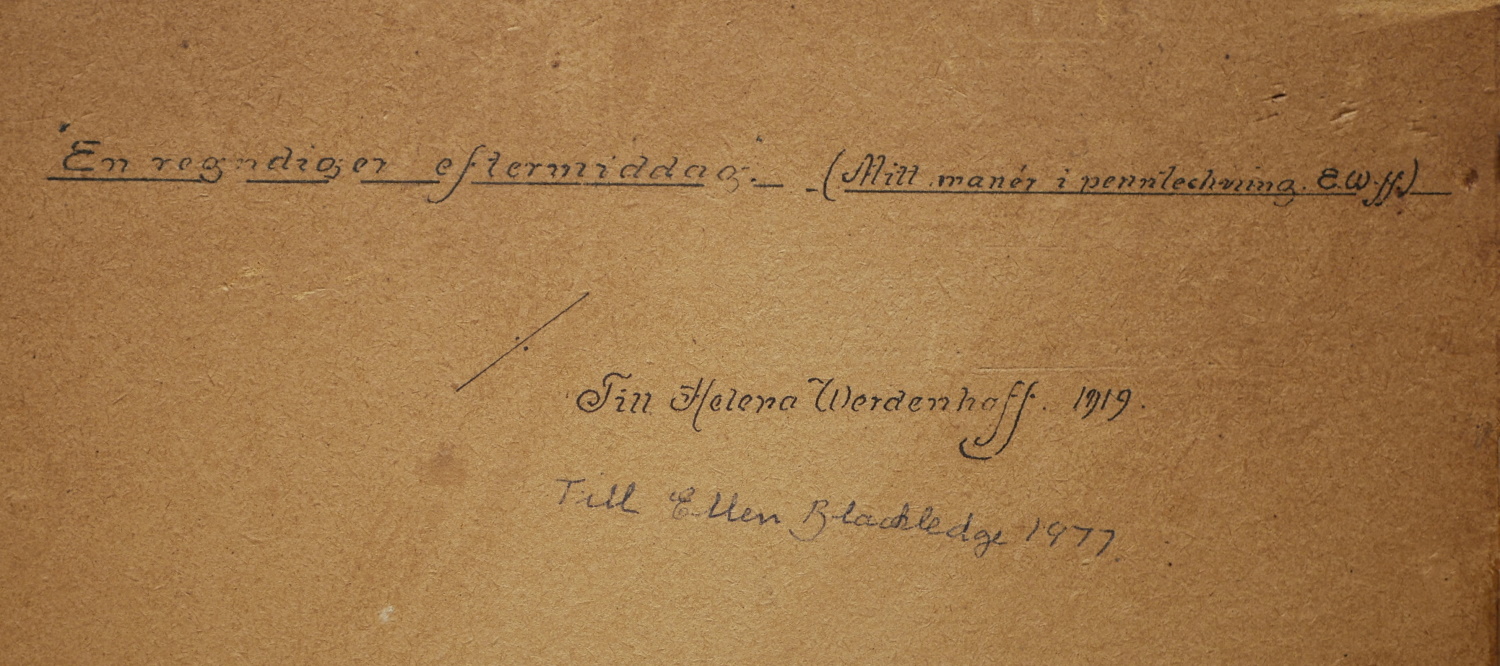 "En regndiger eftermiddag." (Mitt manér i pennteckning. E.W-ff)
Till Helena Werdenhoff. 1919.
Till Ellen Blackledge 1977.